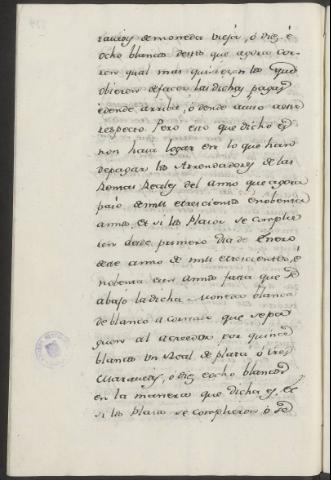 ravedis de moneda vieja, ó diez, é
ocho blancas destas que agora cor-
ren qual mas quisieren los que
obieren de facer las dichas pagas
é dende arriba, ó dende ayuso a este
respecto. Pero esto que dicho es
non haya logar en lo que han
de pagar los Arrendadores de las
Rentas Reales del anno que agora
pasó de mill é trescientos é nobenta
annos, et si los Plazos se complie-
ren desde primero dia de Enero
deste anno de mill é trescientos, é
nobenta un annos fasta que Yo
abajo la dicha Moneda blanca
de blanco a cornado que se pa-
guen al acreedor por quince
blancas un Real de plata, ó tres
Maravedis, ó diez é ocho blancas
en la manera que dicha es, et
si los plazos se complieron ó Yo